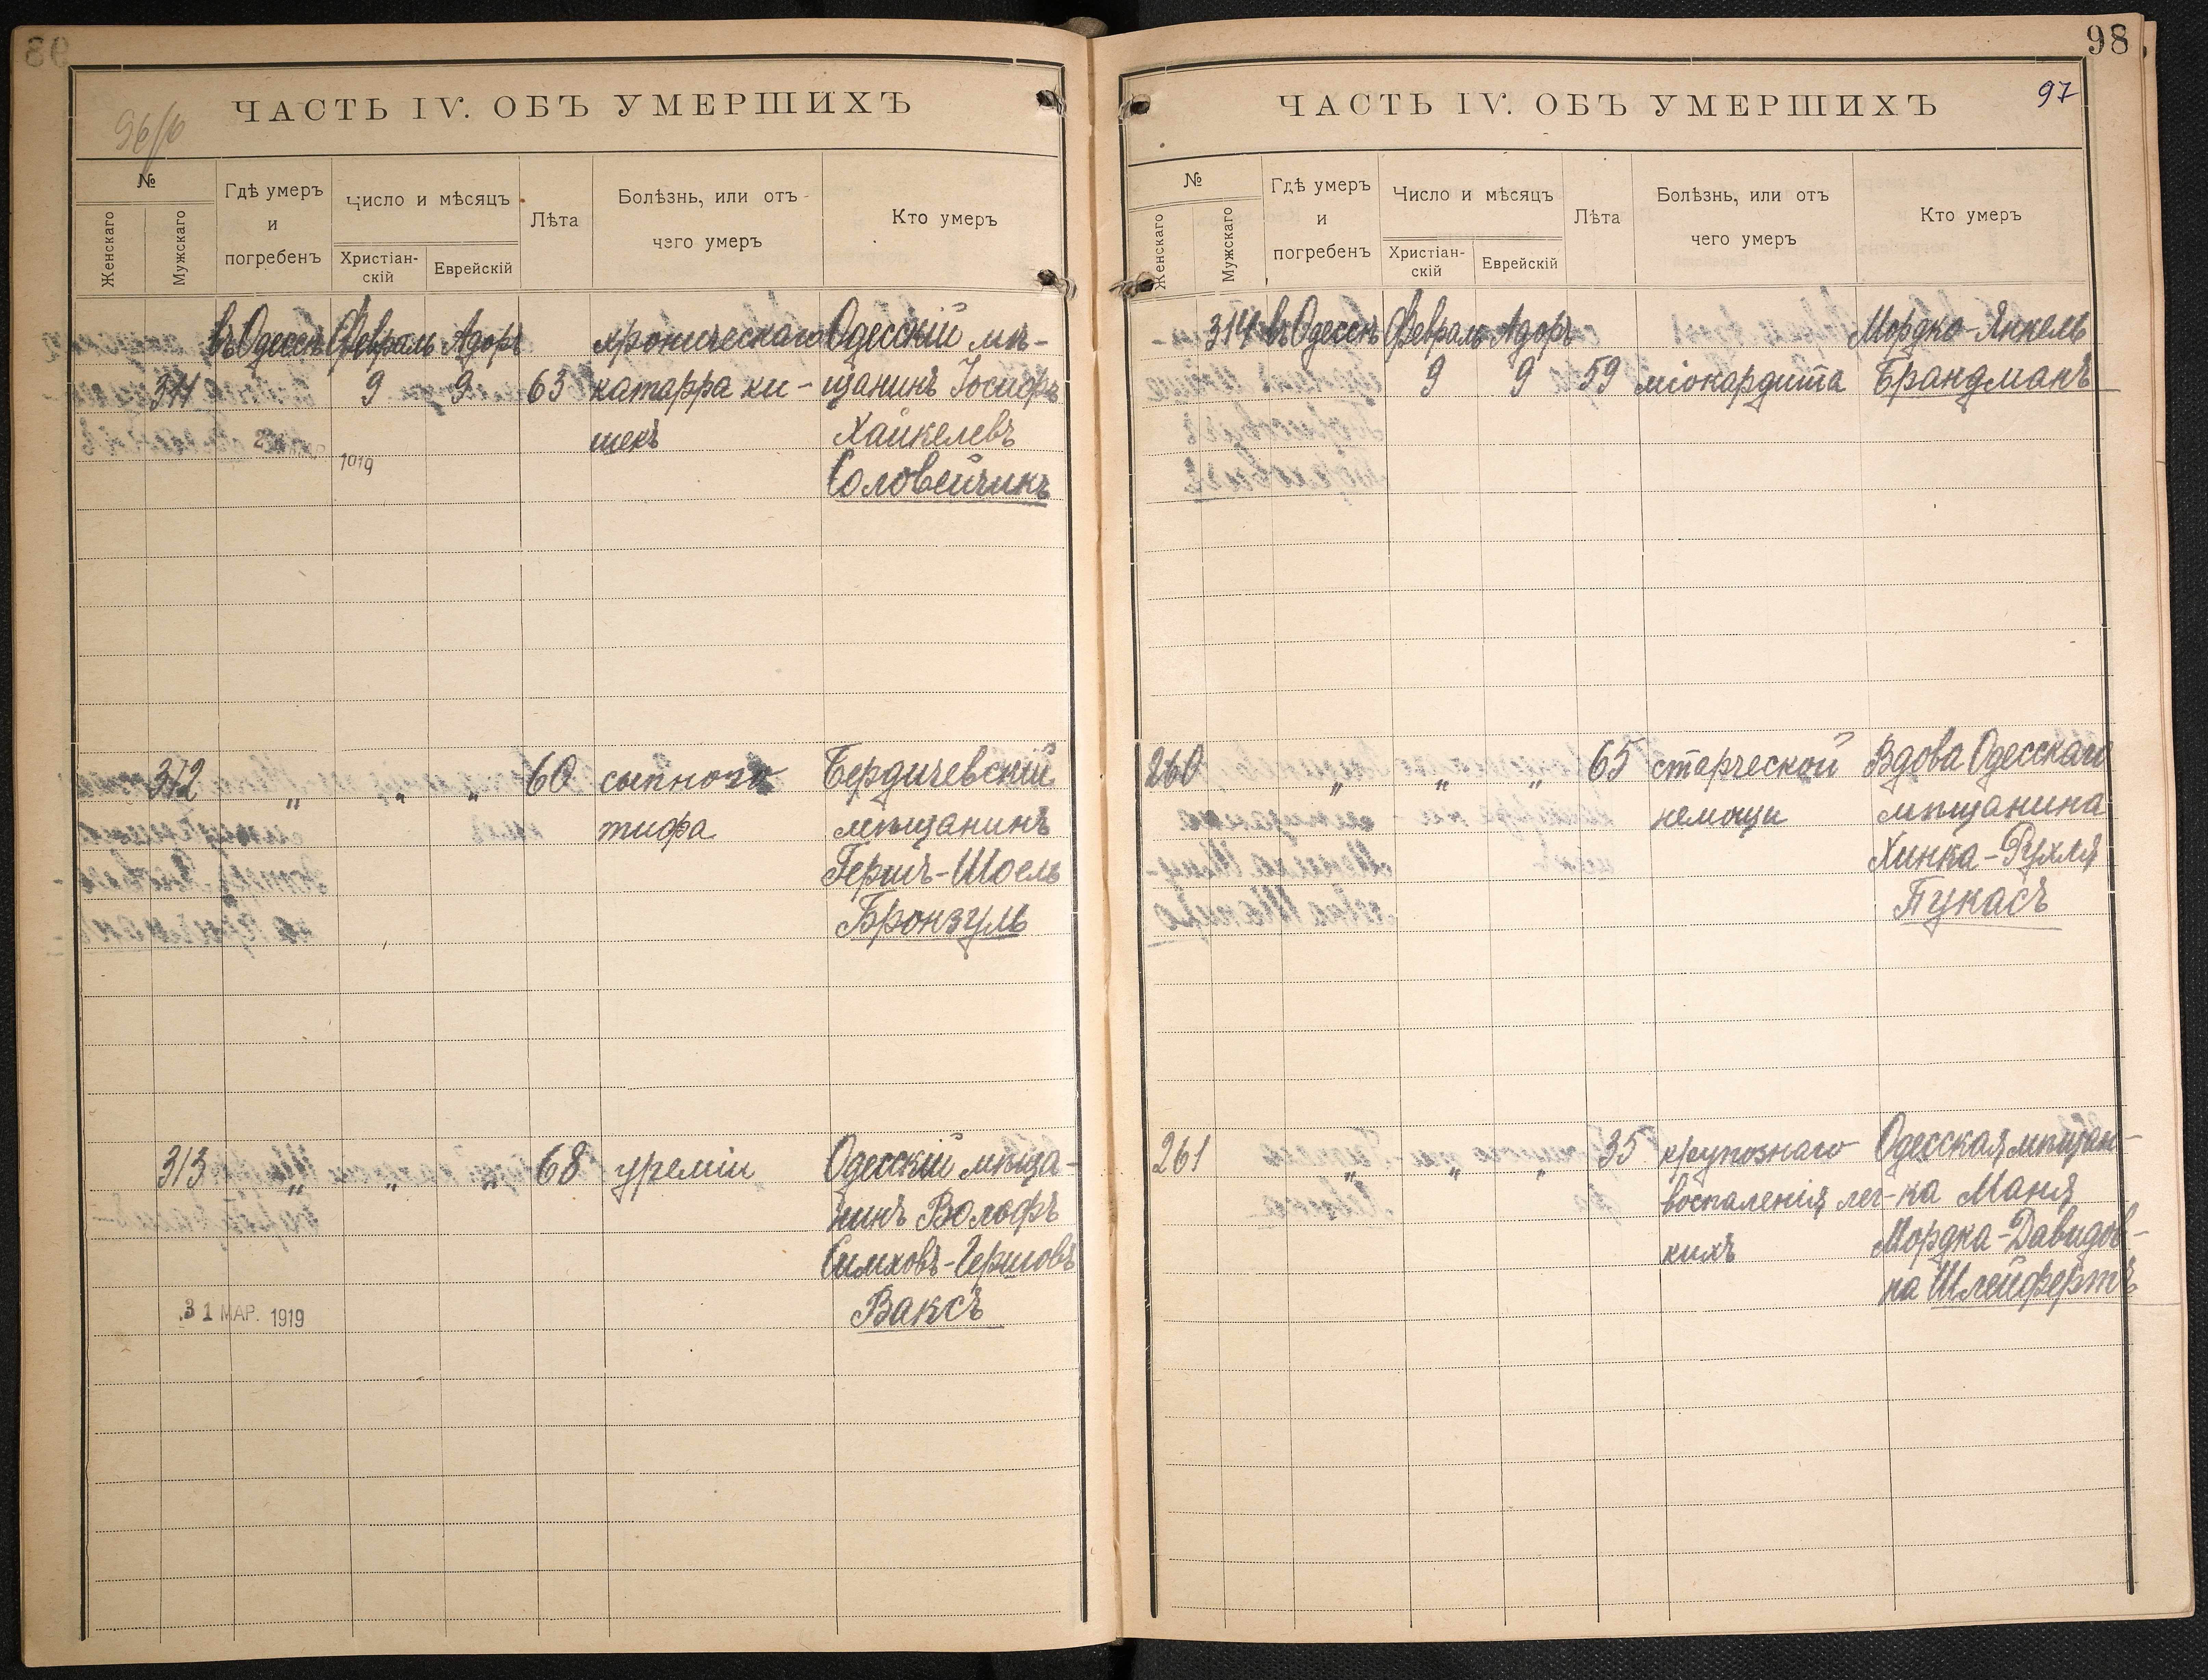 ЧАСТЬ IV. ОБЪ УМЕРШИХЪ
96/б
№
Женскаго
Мужскаго
Гдѣ умеръ
и
погребенъ
Число и мѣсяцъ
Христіан-
скій
Еврейскій
Лѣта
Болѣзнь, или отъ
чего умеръ
Кто умеръ
въ Одессѣ Февраль Адоръ хроническаго Одесскій мѣ-
311 9 9 63 катарра ки- щанинъ Іосифъ
шекъ Хайкелевъ
1919
Соловейчикъ
312 " " " 60 сыпного Бердичевскій
тифа мѣщанинъ
Гершъ-Шоель
Бронзуль
313 " " " 68 уреміи Одесскій мѣща-
нинъ Вольфъ
Симховъ-Гершовъ
31 МАР. 1919 Ваксъ
98
97
ЧАСТЬ IV. ОБЪ УМЕРШИХЪ
№
Женскаго
Мужскаго
Гдѣ умеръ
и
погребенъ
Число и мѣсяцъ
Христіан-
скій
Еврейскій
Лѣта
Болѣзнь, или отъ
чего умеръ
Кто умеръ
314 въ Одессѣ Февраль Адоръ Мордко-Янкель
9 9 59 міокардита Брандманъ
260 " " " 65 старческой Вдова Одесскаго
немощи мѣщанина
Хинка-Рухля
Пукасъ
261 " " " 35 крупознаго Одесская мѣщан-
воспаленія лег- ка Маня
кихъ Мордка-Давидов-
на Шлейфертъ